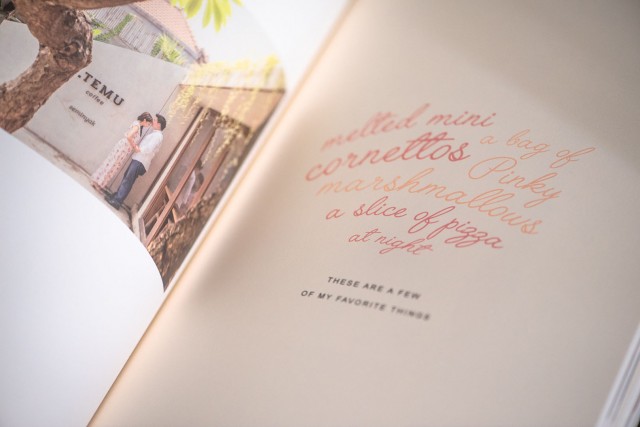 .TEMU
coffee
seminyak
melted mini
cornettos
a bag of
Pinky
marshmallows
a slice of pizza
at night
THESE ARE A FEW
OF MY FAVORITE THINGS